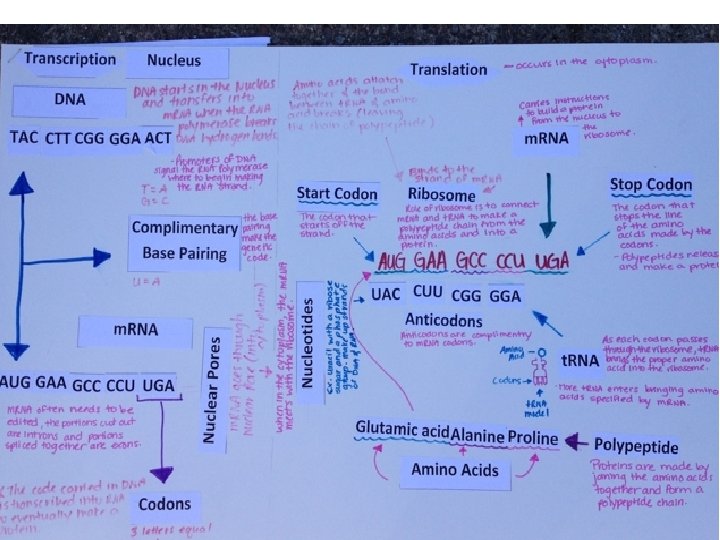 Transcription
Nucleus
DNA
DNA starts in the Nucleus
and transfers into
mRNA when the RNA
polymerase breaks
DNA hydrogen bonds.
TAC CTT CGG GGA ACT
- Promoters of DNA
signal the RNA Polymerase
where to begin making
the RNA strand.
T = A
G = C
Complimentary
Base Pairing
the base
pairing
make the
genetic
code.
U = A
mRNA
AUG GAA GCC CCU UGA
mRNA often needs to be
edited, the portions cut out
are introns and portions
spliced together are exons.
The code carried in DNA
is transcribed into RNA
to eventually make a
protein.
Codons
3 letters equal
Nuclear Pores
mRNA goes through
nuclear pore (into
cytoplasm)
when in the cytoplasm, the mRNA
meets with the ribosome
Translation
occurs in the cytoplasm.
Amino acids attatch
together & the bond
between tRNA & amino
acid breaks (leaving
the chain of polypeptide)
Carries instructions
to build a protein
from the nucleus to
the
ribosome.
mRNA
Start Codon
The codon that
starts off the
strand.
to the
strand of mRNA
Ribosome
Role of ribosome is to connect
mRNA and tRNA to make a
polypeptide chain from the
amino acids and into a
protein.
Stop Codon
The codon that
stops the line
of the amino
acids made by the
codons.
- Polypeptides
and make a
AUG GAA GCC CCU UGA
UAC CUU CGG GGA
Anticodons
Anticodons are complimentry
to mRNA codons.
Nucleotides
ex. uracil with a ribose
sugar and a phosphate
group - make up strands
of DNA or RNA.
Amino
Acid
Codons
tRNA
model
tRNA
As each codon passes
through the ribosome, tRNA
brings the proper amino
acid into the ribosome.
- More tRNA enters bringing amino
acids specified by mRNA.
Glutamic acid Alanine Proline
Amino Acids
Polypeptide
Proteins are made by
joining the amino acids
together and form a
polypeptide chain.